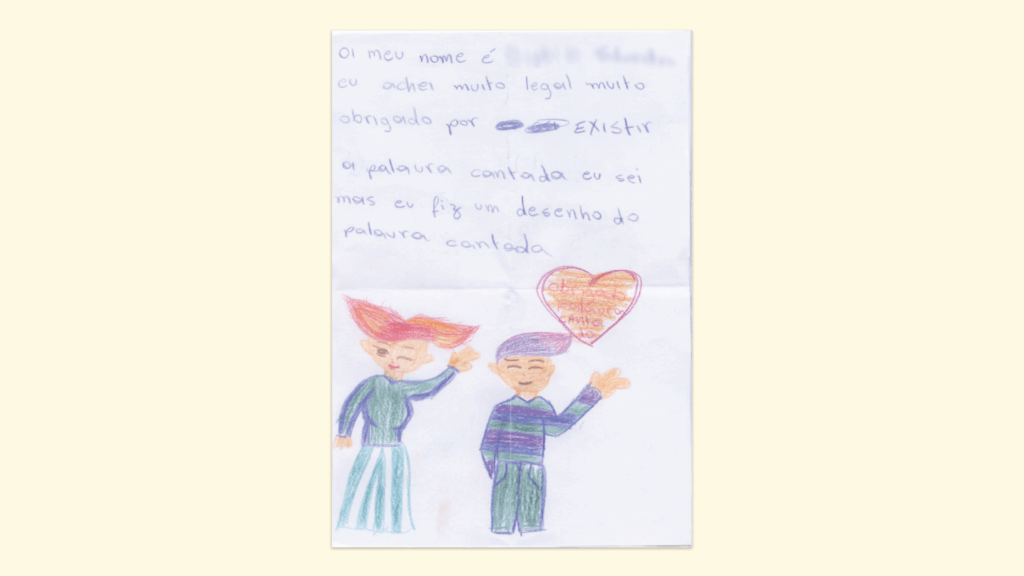 OI meu nome é
eu achei muito legal muito
obrigado por EXIStir
a palavra cantada eu sei
mas eu fiz um desenho do
palavra cantada
obrigado
palavra
canta
da